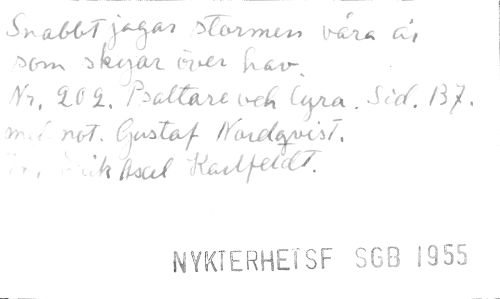 Snabbt jagar stormen våra år
som skyar över hav.
Nr. 202. Psaltare och Lyra. Sid. 137.
not. Gustaf Nordqvist.
Erik Axel Karlfeldt.
NYKTERHETSF SGB 1955